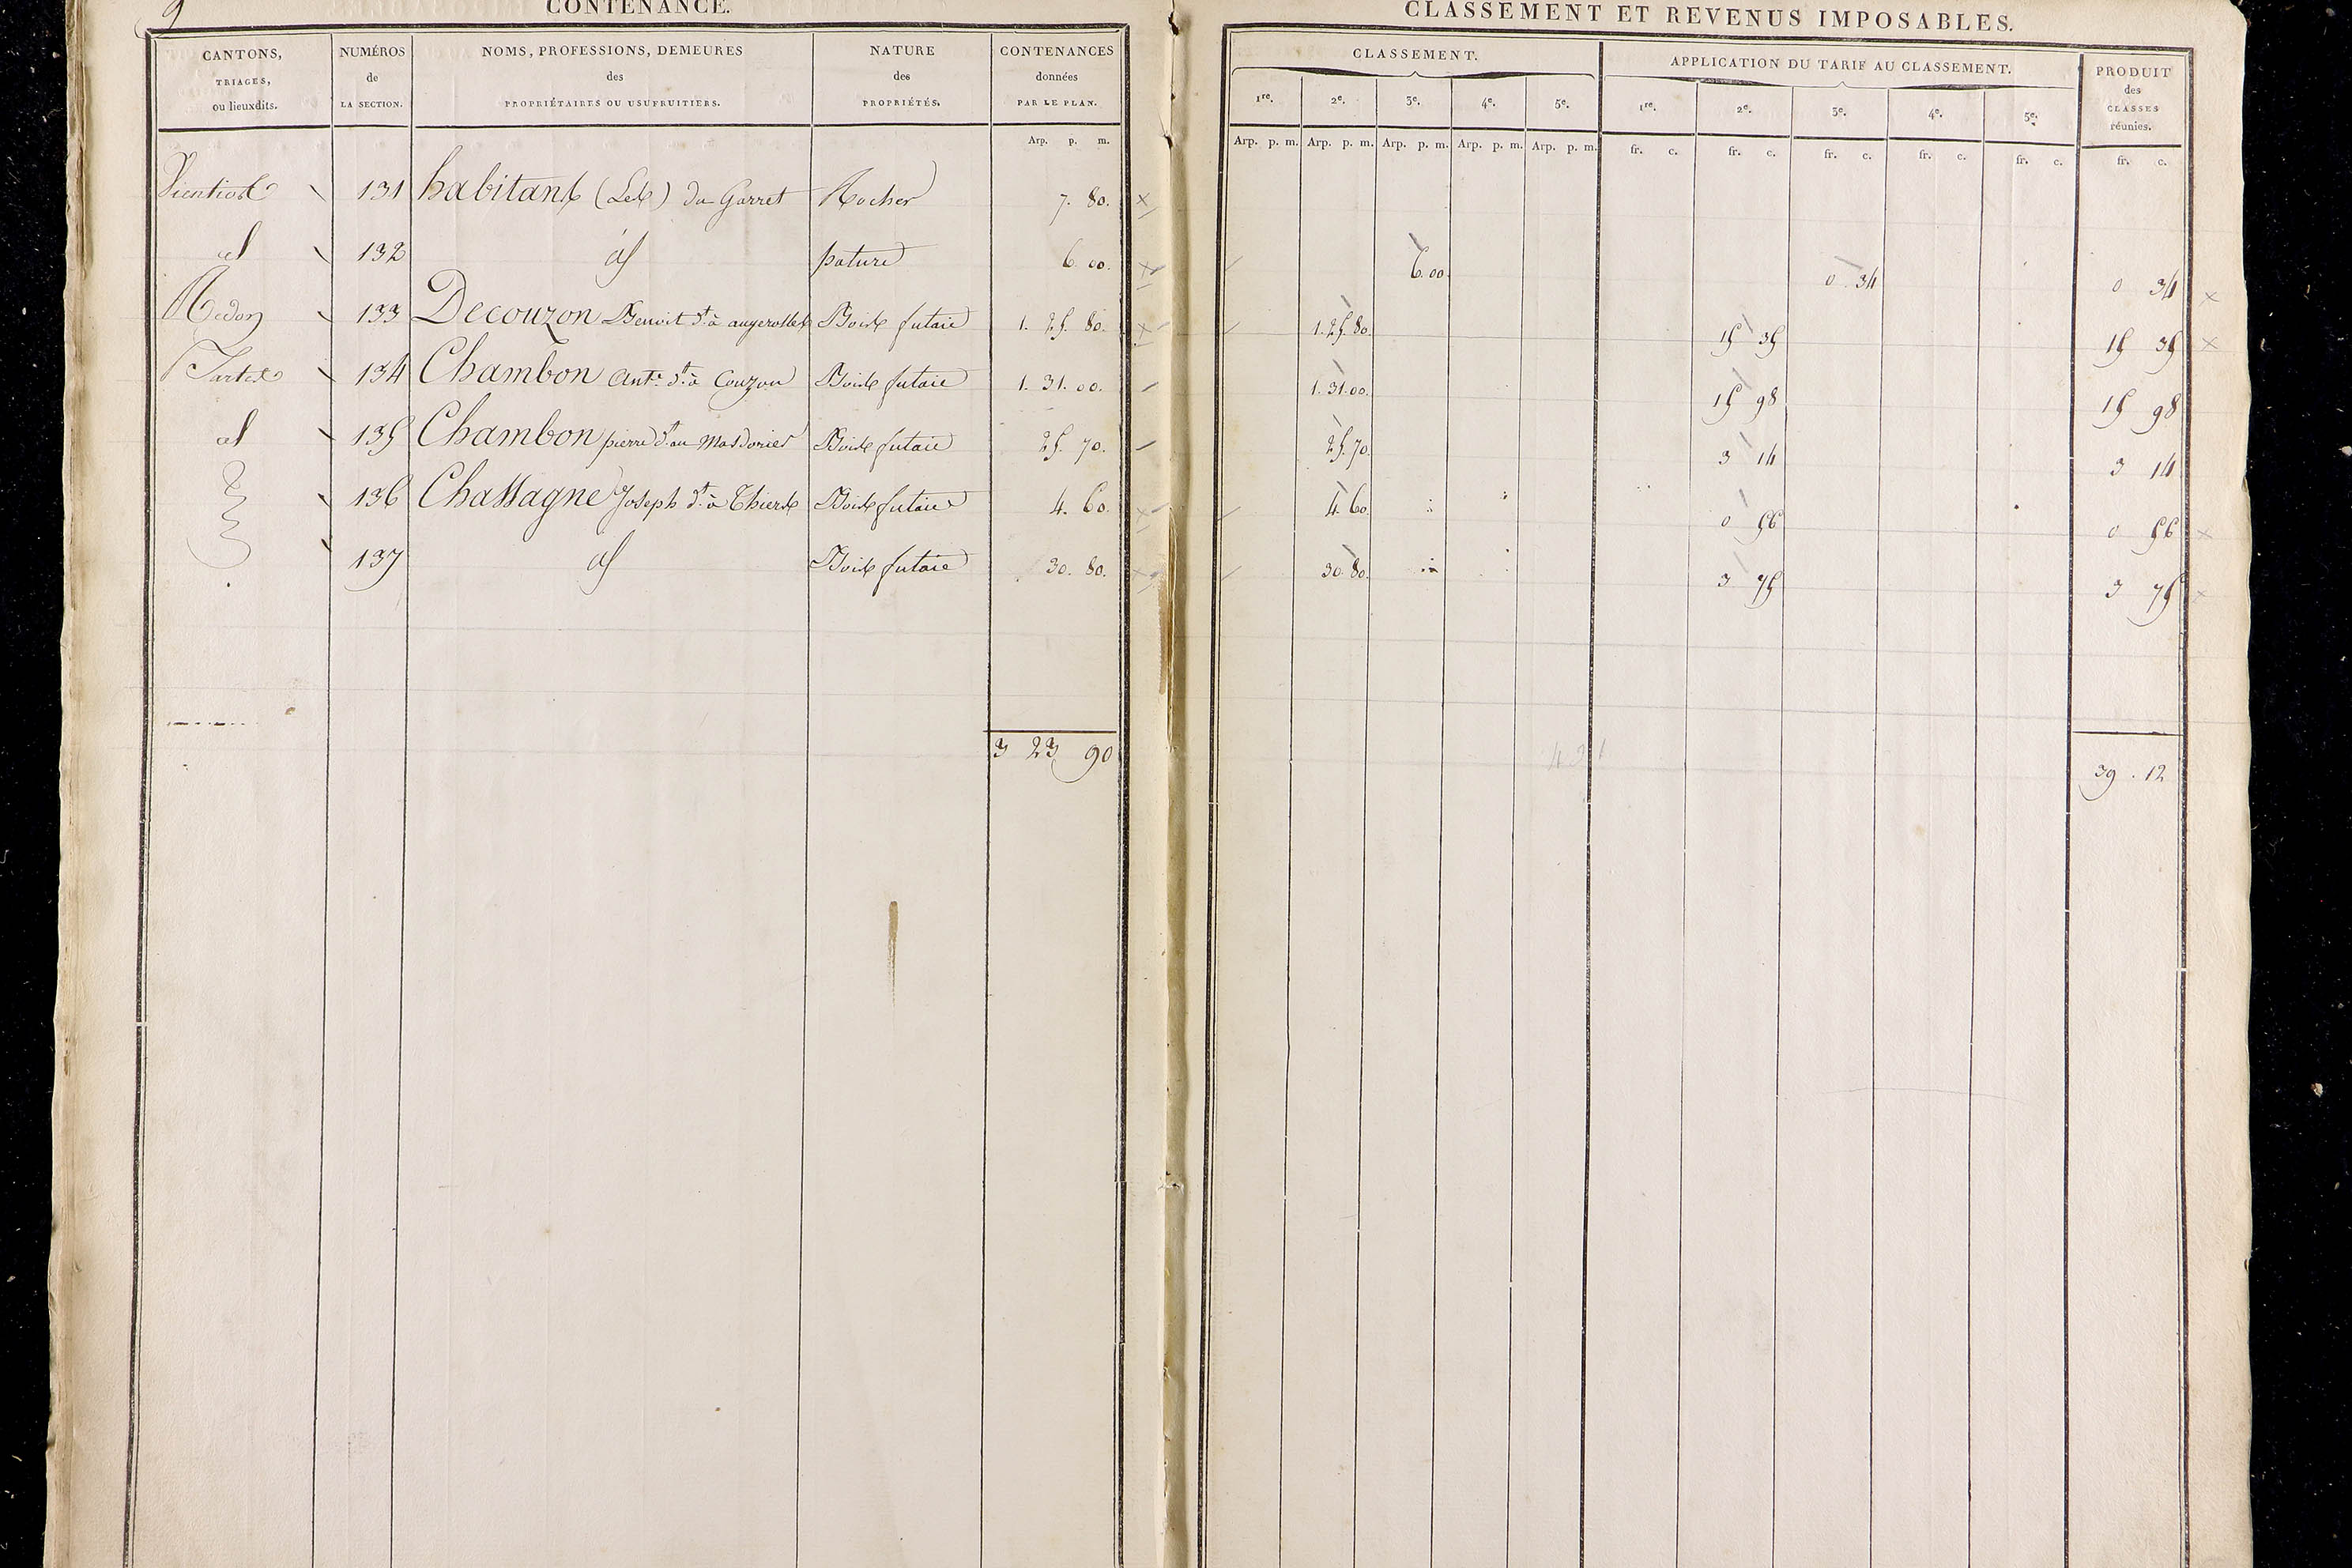 9
CONTENANCE.
CANTONS, TRIAGES, ou lieuxdits. NUMÉROS de LA SECTION. NOMS, PROFESSIONS, DEMEURES des PROPRIÉTAIRES OU USUFRUITIERS. NATURE des PROPRIÉTÉS. CONTENANCES données PAR LE PLAN.
Arp. p. m.
131 habitants (Les) du Garret Rocher 7. 80.
id 132 id pature 6 00.
133 Decouzon Benoit dt. à augerolles Bois futaie 1. 25. 80.
134 Chambon Ante. dt. à Couzon Bois futaie 1. 31. 00.
id 135 Chambon pierre dt. au Masdorier Bois futaie 25. 70.
136 Chassagne Joseph dt. à Thiers Bois futaie 4. 60.
137 id Bois futaie 30. 80.
3 23 90
CLASSEMENT ET REVENUS IMPOSABLES.
CLASSEMENT. APPLICATION DU TARIF AU CLASSEMENT. PRODUIT des CLASSES réunies.
1re. 2e. 3e. 4e. 5e. 1re. 2e. 3e. 4e. 5e.
Arp. p. m. Arp. p. m. Arp. p. m. Arp. p. m. Arp. p. m. fr. c. fr. c. fr. c. fr. c. fr. c. fr. c.
6.00. 0 34 0 34
1.25.80. 15 35 15 35
1.31.00. 15 98 15 98
25.70. 3 14 3 14
4.60. 0 56 0 56
30.80. 3 75 3 75
39.12